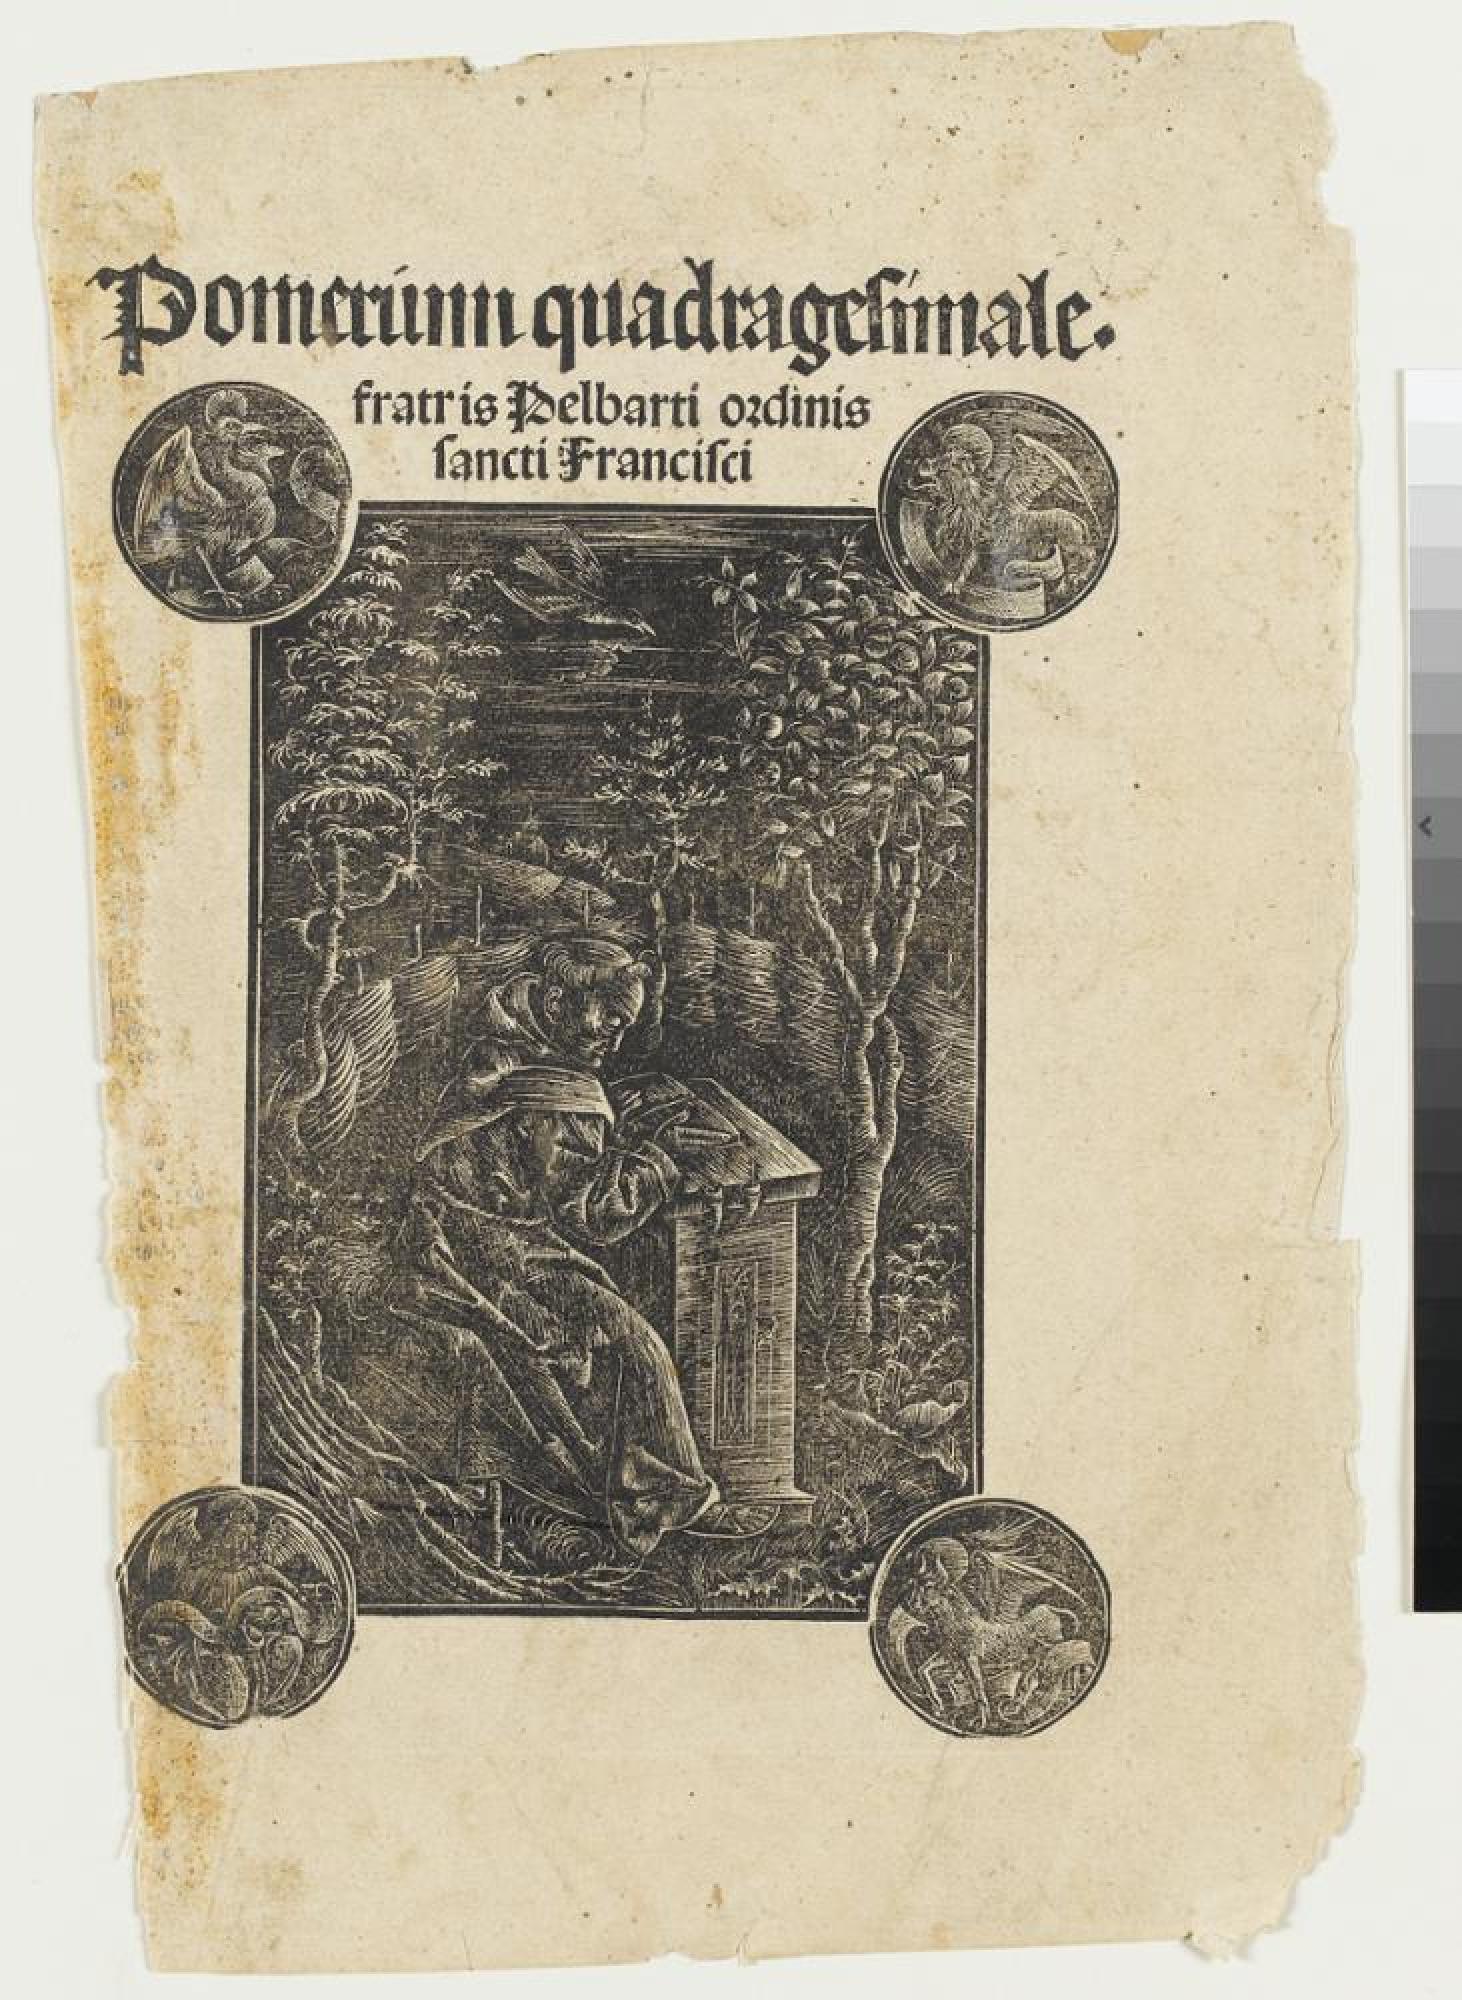 Pomerium quadragesimale.
fratris Pelbarti ordinis
sancti Francisci